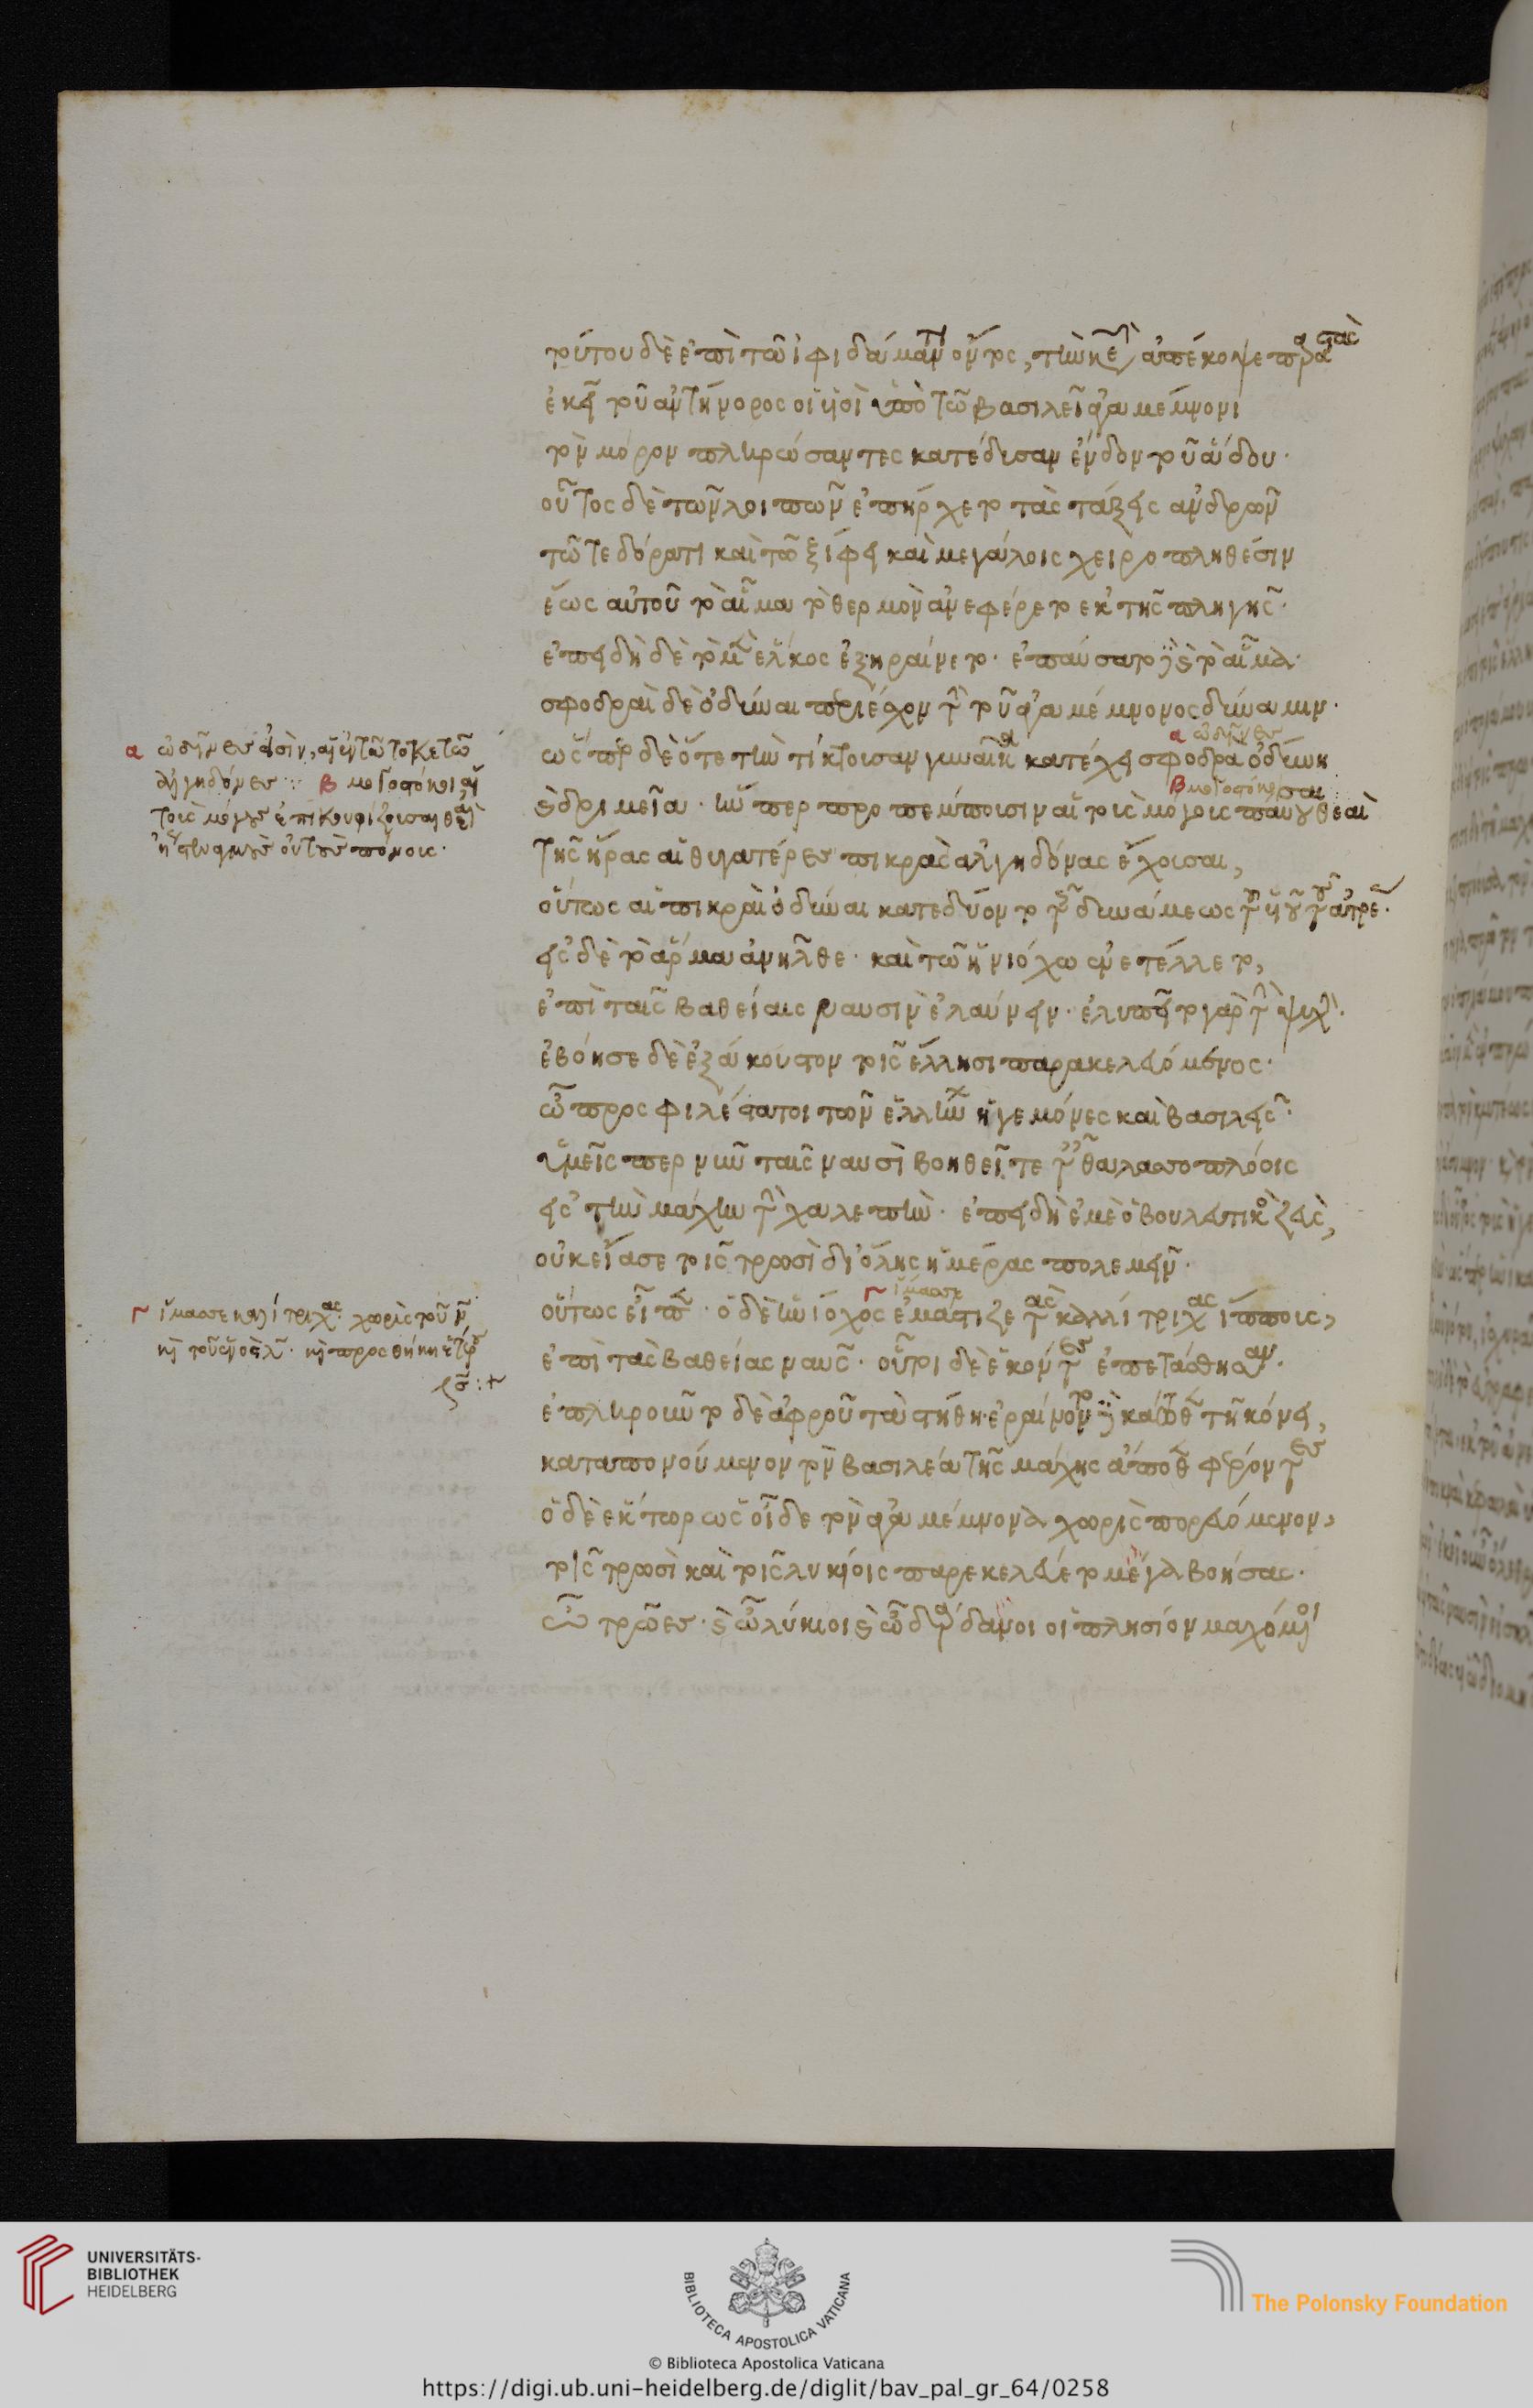 τούτου δὲ ἐπὶ τῶ ἰφιδάμαντι ὄντος, τὴν κεφαλὴν ἀπέκοψε παραστὰς
ἐκεῖ τοῦ ἀντήνορος οἱ υἱοὶ ὑπὸ τῶ βασιλεῖ ἀγαμέμνονι
τὸν μόρον πληρώσαντες κατέδυσαν ἔνδον τοῦ ἅδου·
οὗτος δὲ τῶν λοιπῶν ἐπήρχετο τὰς τάξεις ἀνδρῶν
τῶ τε δόρατι καὶ τῶ ξίφει καὶ μεγάλοις χειροπληθέσιν
ἕως αὐτοῦ τὸ αἷμα τὸ θερμὸν ἀνεφέρετο ἐκ τῆς πληγῆς·
ἐπειδὴ δὲ τὸ μὲν ἕλκος ἐξηραίνετο· ἐπαύσατο δὲ τὸ αἷμα·
σφοδραὶ δὲ ὀδύναι περιέσχον τὴν τοῦ ἀγαμέμνονος δύναμιν·
α ὠδῖνες εἰσὶν, αἱ ἐν τῶ τοκετῶ
ἀλγηδόνες : β μογοστόκοι, αἱ
τοὺς μόγους ἐπικουφίζουσαι θεαὶ
α ὠδῖνες
ὥσπερ δὲ ὅτε τὴν τίκτουσαν γυναῖκα κατέχει σφοδρὰ ὀδύνη
β μογοστόκοι
καὶ δριμεῖα· ἥνπερ προπέμπουσιν αἱ τοῖς μόγοις παροῦσαι θεαὶ
τῆς ἥρας αἱ θυγατέρες πικρὰς ἀλγηδόνας ἔχουσαι,
οὕτως αἱ πικραὶ ὀδύναι κατεδύοντο τῆς δυνάμεως τοῦ υἱοῦ τοῦ ἀτρέως·
εἰς δὲ τὸ ἅρμα ἀνῆλθε· καὶ τῶ ἡνιόχω ἐνετέλλετο,
ἐπὶ ταῖς βαθείαις ναυσὶν ἐλαύνειν· ἐλυπεῖτο γὰρ τὴν ψυχήν·
ἐβόησε δὲ ἐξάκουστον τοῖς ἕλλησι παρακελευόμενος·
ὦ προσφιλέστατοι τῶν ἑλλήνων ἡγεμόνες καὶ βασιλεῖς·
ὑμεῖς περ νῦν ταῖς ναυσὶ βοηθεῖτε ταῖς θαλασσοπλόοις
εἰς τὴν μάχην τὴν χαλεπήν· ἐπειδὴ ἐμὲ ὁ βουλευτικὸς ζεὺς,
οὐκ εἴασε τοῖς τρωσὶ δι' ὅλης ἡμέρας πολεμεῖν·
γ ἵμασε καλλίτριχας χωρὶς τοῦ ν
γ ἵμασε
οὕτως εἶπεν· ὁ δὲ ἡνίοχος ἐμάστιζε τοὺς καλλίτριχας ἵππους,
ἐπὶ τὰς βαθείας ναῦς· οὗτοι δὲ ἑκόντες ἐπετάσθησαν·
ἐπληροῦντο δὲ ἀφροῦ τὰ στήθη· ἐραίνοντο δὲ κάτωθεν τῆ κόνει,
καταπονούμενον τὸν βασιλέα τῆς μάχης ἄποθεν φέροντες
ὁ δὲ ἕκτωρ ὡς οἶδε τὸν ἀγαμέμνονα χωρὶς πορευόμενον,
τοῖς τρωσὶ καὶ τοῖς λυκίοις παρεκελεύετο μέγα βοήσας·
ὦ τρῶες· καὶ ὦ λύκιοι καὶ ὦ δάρδανοι οἱ πλησίον μαχόμενοι
UNIVERSITÄTS-
BIBLIOTHEK
HEIDELBERG
BIBLIOTECA APOSTOLICA VATICANA
The Polonsky Foundation
© Biblioteca Apostolica Vaticana
https://digi.ub.uni-heidelberg.de/diglit/bav_pal_gr_64/0258